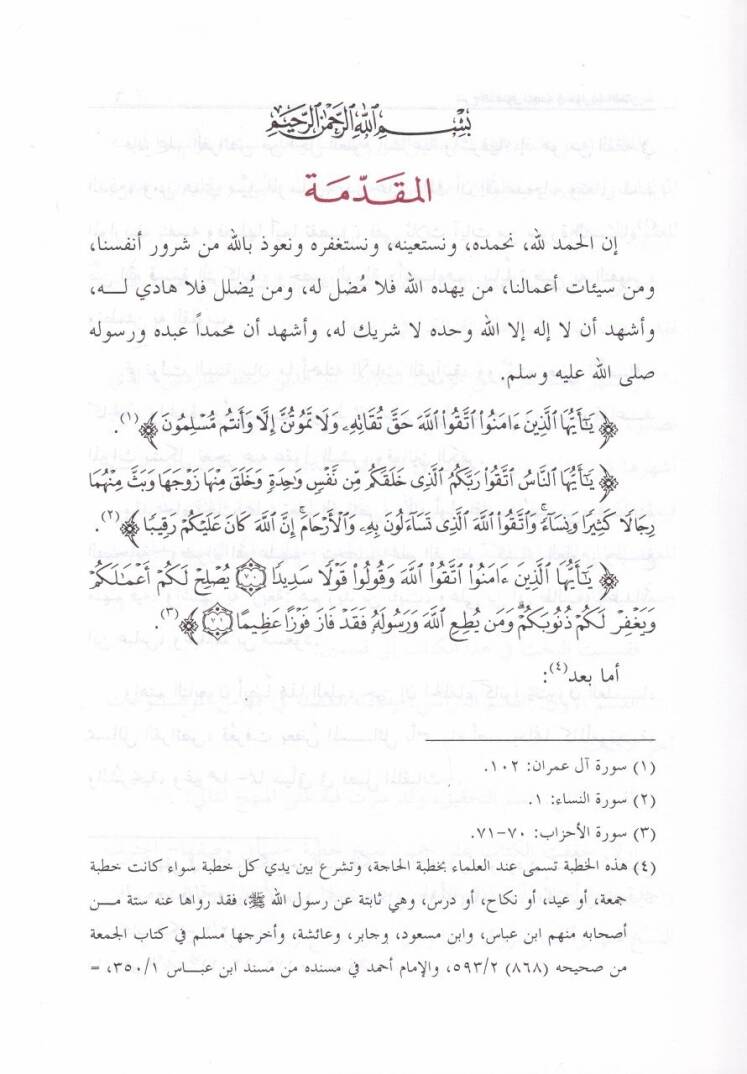 بسم الله الرحمن الرحيم
المقدّمة
إن الحمد لله، نحمده، ونستعينه، ونستغفره ونعوذ بالله من شرور أنفسنا،
ومن سيئات أعمالنا، من يهده الله فلا مُضل له، ومن يُضلل فلا هادي لـــه،
وأشهد أن لا إله إلا الله وحده لا شريك له، وأشهد أن محمداً عبده ورسوله
صلى الله عليه وسلم.
﴿ يَـٰٓأَيُّهَا ٱلَّذِينَ ءَامَنُوا۟ ٱتَّقُوا۟ ٱللَّهَ حَقَّ تُقَاتِهِۦ وَلَا تَمُوتُنَّ إِلَّا وَأَنتُم مُّسْلِمُونَ ﴾(١).
﴿ يَـٰٓأَيُّهَا ٱلنَّاسُ ٱتَّقُوا۟ رَبَّكُمُ ٱلَّذِى خَلَقَكُم مِّن نَّفْسٍ وَٰحِدَةٍ وَخَلَقَ مِنْهَا زَوْجَهَا وَبَثَّ مِنْهُمَا
رِجَالًا كَثِيرًا وَنِسَآءً ۚ وَٱتَّقُوا۟ ٱللَّهَ ٱلَّذِى تَسَآءَلُونَ بِهِۦ وَٱلْأَرْحَامَ ۚ إِنَّ ٱللَّهَ كَانَ عَلَيْكُمْ رَقِيبًا ﴾(٢).
﴿ يَـٰٓأَيُّهَا ٱلَّذِينَ ءَامَنُوا۟ ٱتَّقُوا۟ ٱللَّهَ وَقُولُوا۟ قَوْلًا سَدِيدًا ٧٠ يُصْلِحْ لَكُمْ أَعْمَـٰلَكُمْ
وَيَغْفِرْ لَكُمْ ذُنُوبَكُمْ ۗ وَمَن يُطِعِ ٱللَّهَ وَرَسُولَهُۥ فَقَدْ فَازَ فَوْزًا عَظِيمًا ٧١ ﴾(٣).
أما بعد(٤):
(١) سورة آل عمران: ١٠٢.
(٢) سورة النساء: ١.
(٣) سورة الأحزاب: ٧٠-٧١.
(٤) هذه الخطبة تسمى عند العلماء بخطبة الحاجة، وتشرع بين يدي كل خطبة سواء كانت خطبة
جمعة، أو عيد، أو نكاح، أو درس، وهي ثابتة عن رسول الله ﷺ، فقد رواها عنه ستة مـــن
أصحابه منهم ابن عباس، وابن مسعود، وجابر، وعائشة، وأخرجها مسلم في كتاب الجمعة
من صحيحه (٨٦٨) ٥٩٣/٢، والإمام أحمد في مسنده من مسند ابن عبـــاس ٣٥٠/١، =